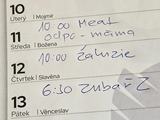 10
Úterý | Mojmír
10:00 Meat
odpo - máma
11
Středa | Božena
10:00 žaluzie
12
Čtvrtek | Slavěna
6:30 Zubař Z
13
Pátek | Věnceslav